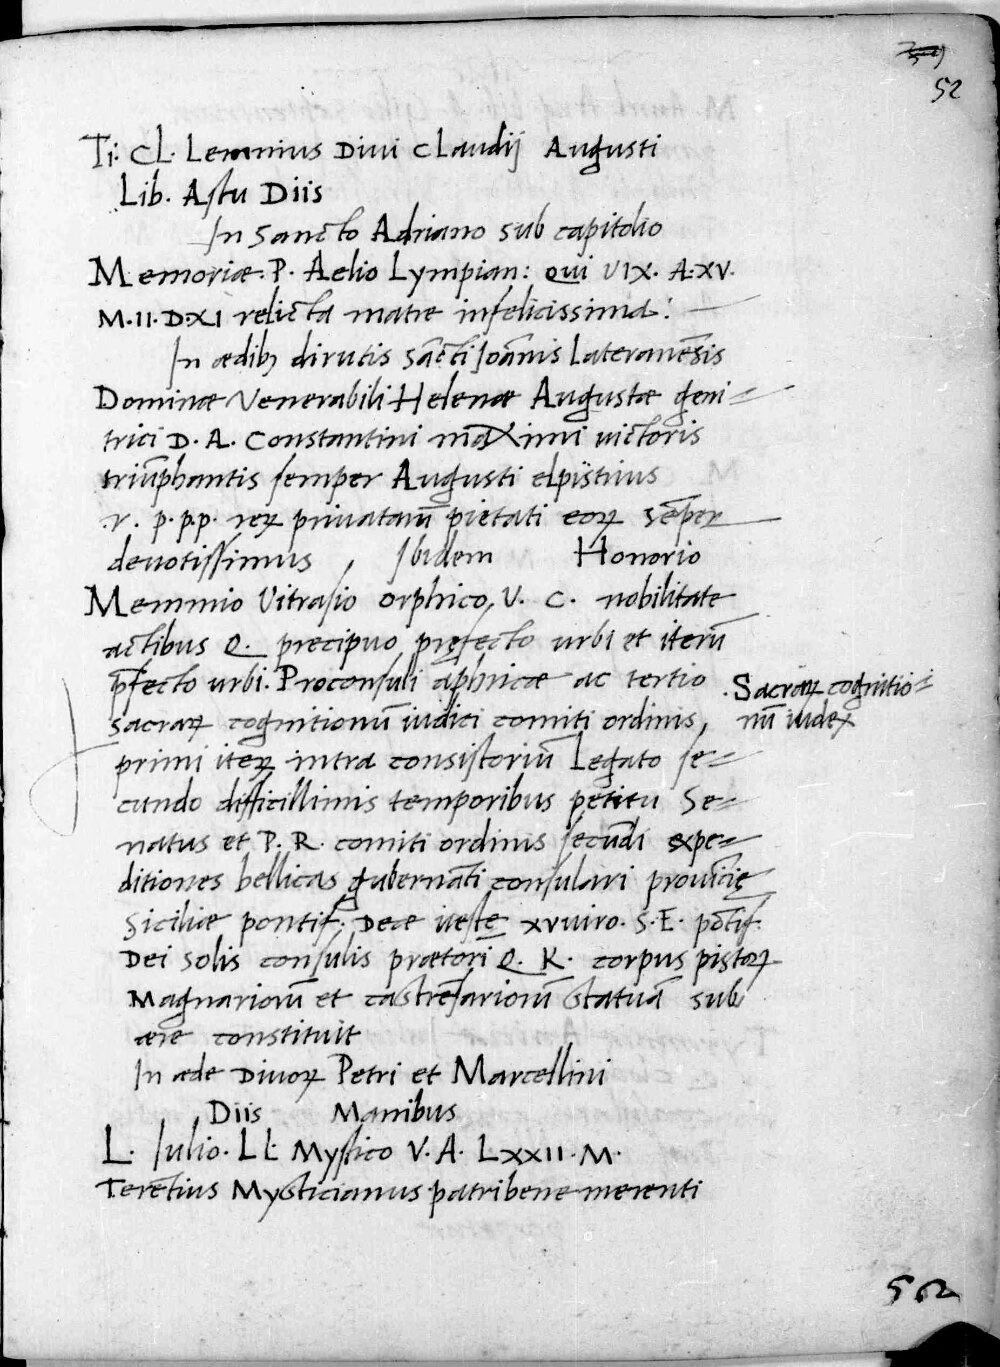 52
Ti: CL. Lemnius Diui Claudij Augusti
Lib. Astu Diis
In Sancto Adriano sub capitolio
Memoriæ. P. Aelio Lympian: qui VIX. A. XV.
M. II. D. XI relicta matre infelicissima:
In ædibꝫ dirutis Sācti Joānis Lateranēsis
Dominæ Venerabili Helenæ Augustæ geni=
trici D. A. Constantini maximi uictoris
triūphantis semper Augusti elpistius
.v. p. p.p. reꝝ priuataꝝ pietati eoꝝ sēper
deuotissimus, Ibidem Honorio
Memmio Vitrasio orphico, V. C. nobilitate
actibus Q. precipuo pręfecto urbi et iterū
p̄fecto urbi. Proconsuli aphricæ ac tertio
sacraꝝ cognitionū iudici comiti ordinis,
Sacraꝝ cognitio=
nū iudex
primi iteꝝ intra consistoriū Legato se=
cundo difficillimis temporibus petitu Se=
natus et P. R. comiti ordinis secūdi expe=
ditiones bellicas gubernāti consulari prouīcię
Siciliæ pontif. Deæ uestę xvuiro. S. E. pōtif.
Dei solis consulis prætori Q. K. corpus pistoꝝ
Magnariorū et castrēsariorū statuā sub
ære constituit
In æde Diuoꝝ Petri et Marcellini
Diis Manibus
L. Iulio. L L. Mystico V. A. LXXII. M.
Terētius Mysticianus patri bene merenti